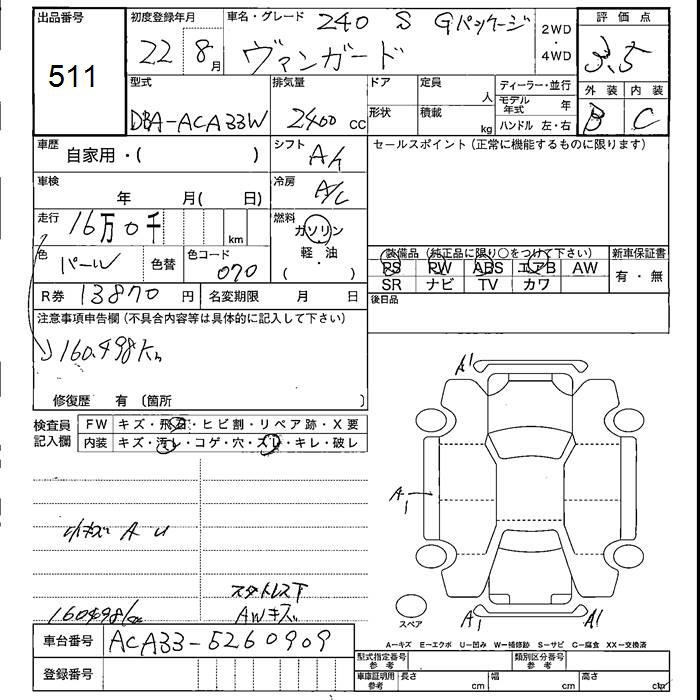 出品番号
511
初度登録年月
22 8月
車名・グレード 240 S Gパッケージ
ヴァンガード
2WD
・
4WD
評価点
3.5
外装 内装
B C
型式
DBA-ACA33W
排気量
2400 cc
ドア
形状
定員 人
積載 kg
ディーラー・並行
モデル年式 年
ハンドル 左・右
車歴 自家用・( )
シフト A/t
セールスポイント (正常に機能するものに限ります)
車検 年 月( 日)
冷房 A/C
走行 16万0千 km
燃料 ガソリン
軽・油
( )
色 パール 色替 色コード 070
装備品 (純正品に限り○をつけて下さい) 新車保証書
PS PW ABS エアB AW 有・無
SR ナビ TV カワ
R券 13870 円 名変期限 月 日
後日品
注意事項申告欄 (不具合内容等は具体的に記入して下さい)
160.498Km
修復歴 有 〔箇所 〕
検査員記入欄
FW キズ・飛石・ヒビ割・リペア跡・X要
内装 キズ・汚レ・コゲ・穴・スレ・キレ・破レ
A1
A1
小キズ A U
スタットレス下
AWキズ
160498Km
スペア
A1 A1
車台番号 ACA33-5260909
A−キズ E−エクボ U−凹み W−補修跡 S−サビ C−腐食 XX−交換済
型式指定番号参考 類別区分番号参考
登録番号
車庫証明用参考 長さ cm 幅 cm 高さ cm